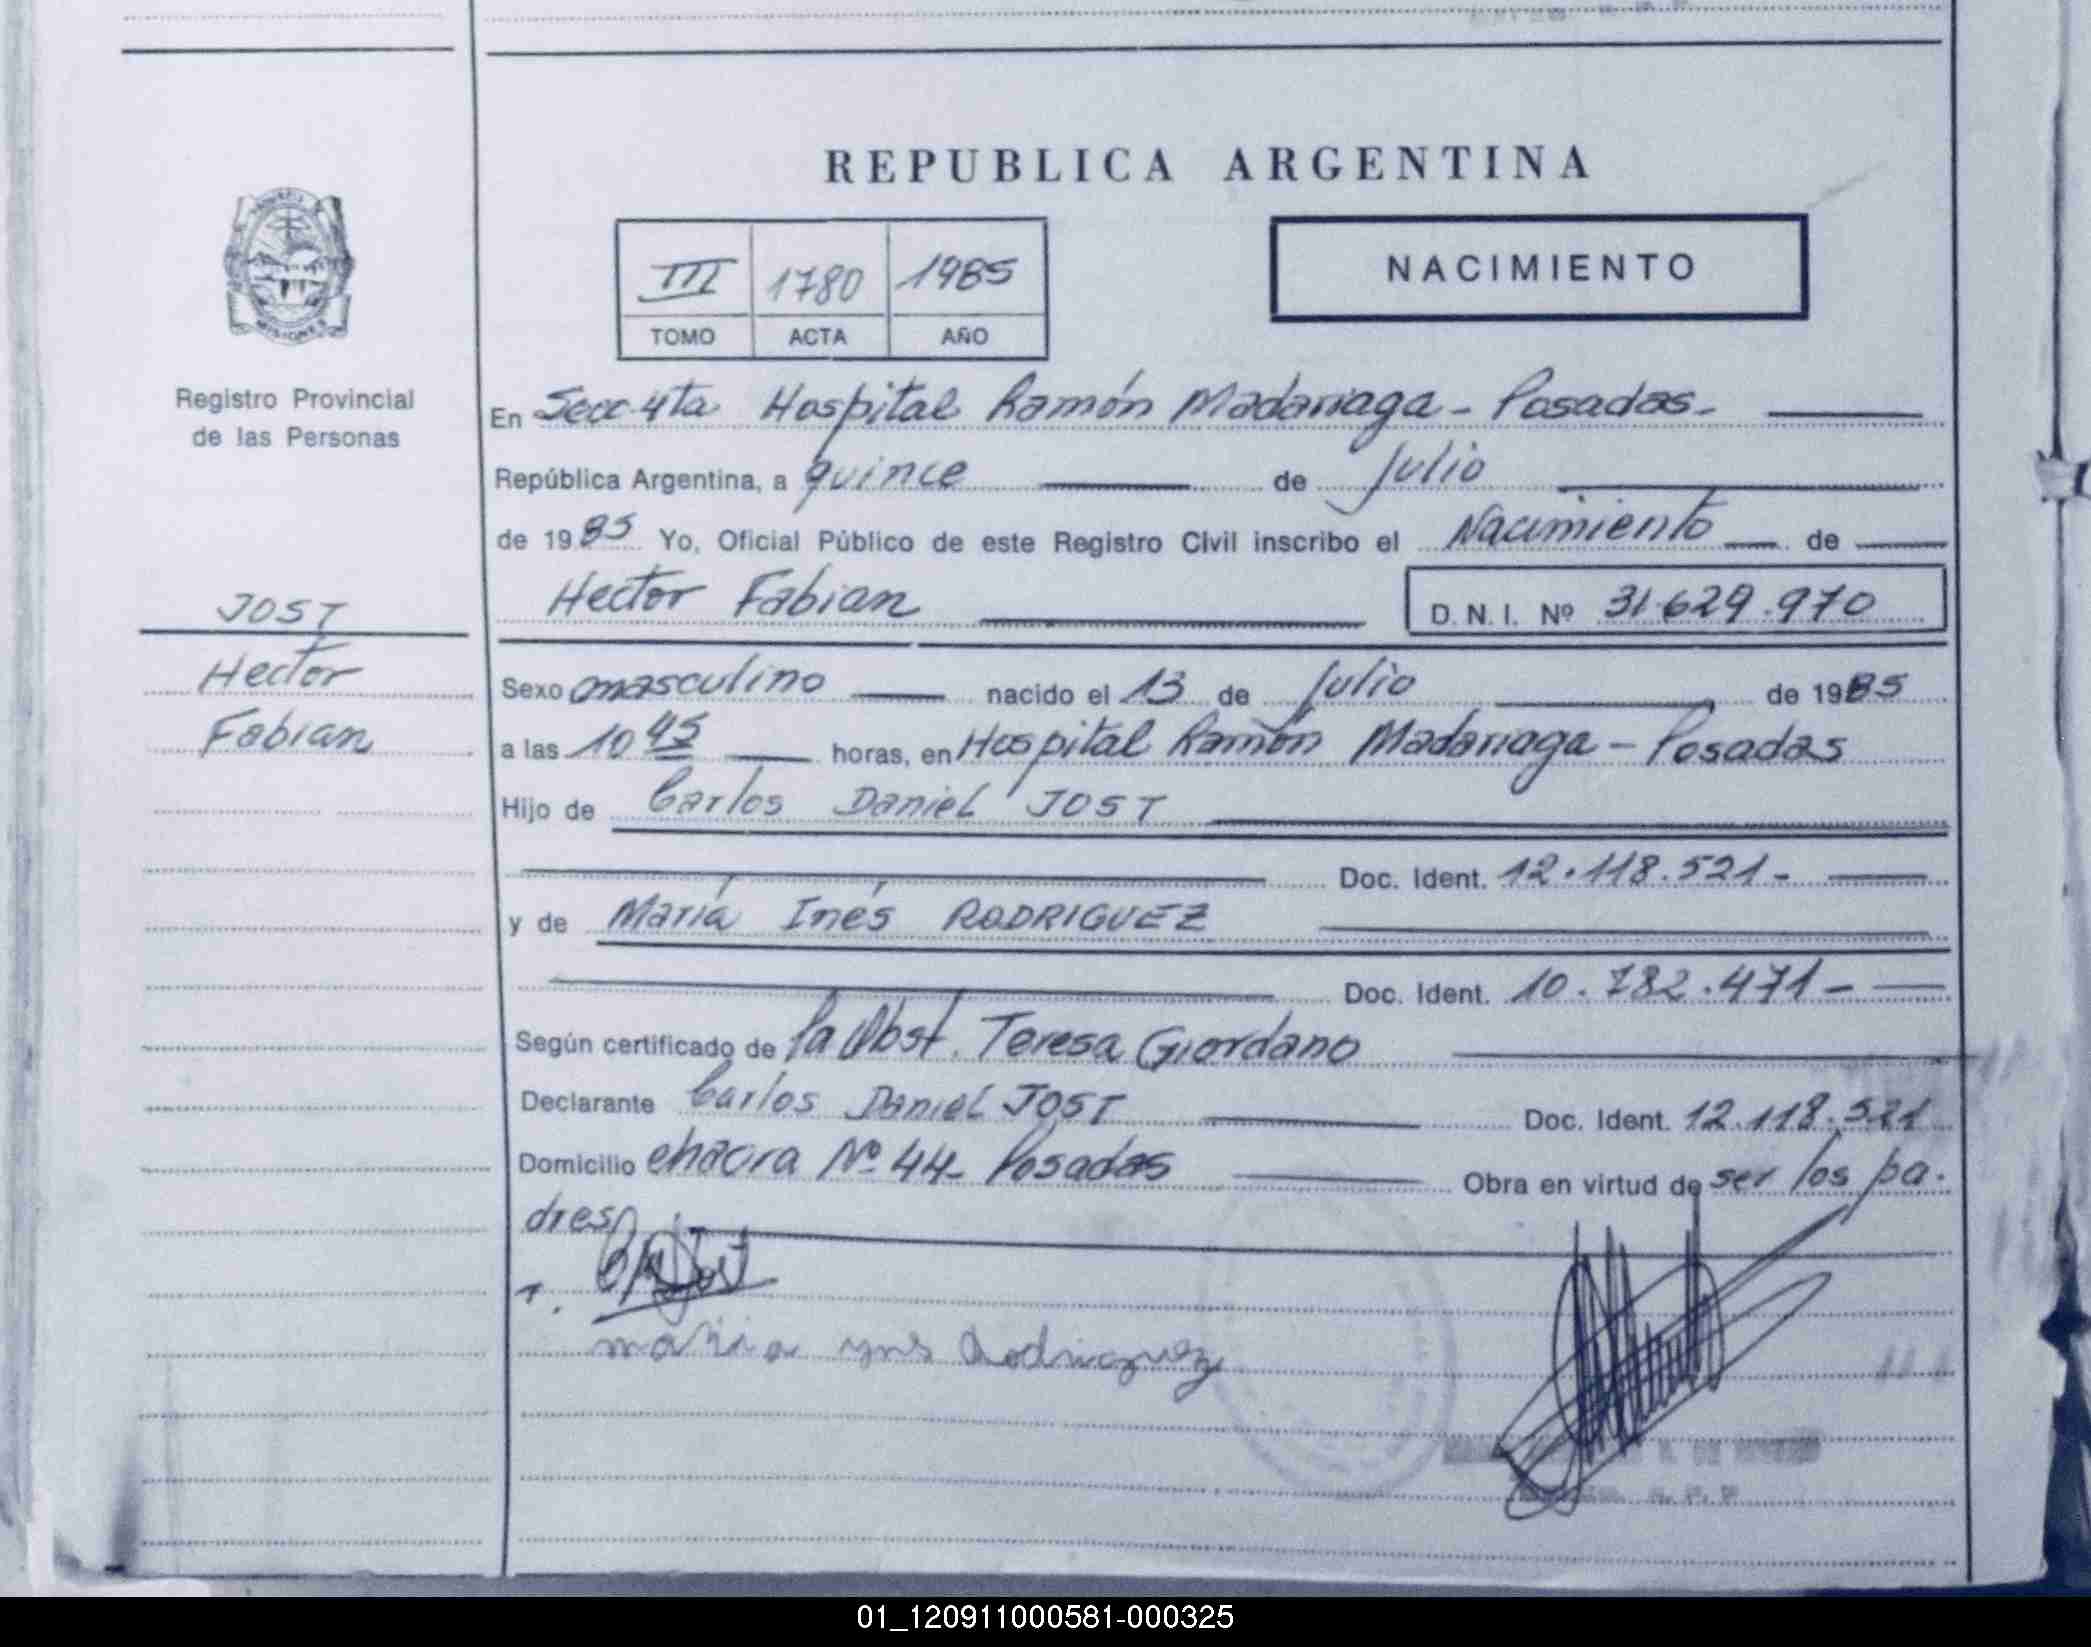 REPUBLICA ARGENTINA
III 1780 1985
TOMO ACTA AÑO
NACIMIENTO
Registro Provincial
de las Personas
JOST
Hector
Fabian
En Secc 4ta Hospital Ramón Madariaga - Posadas -
República Argentina, a quince de Julio
de 1985 Yo, Oficial Público de este Registro Civil inscribo el Nacimiento de
Hector Fabian D. N. I. Nº 31.629.970
Sexo masculino nacido el 13 de Julio de 1985
a las 10 45 horas, en Hospital Ramón Madariaga - Posadas
Hijo de Carlos Daniel JOST
Doc. Ident. 12.118.521 -
y de María Inés RODRIGUEZ
Doc. Ident. 10.782.471 -
Según certificado de la Obst. Teresa Giordano
Declarante Carlos Daniel JOST Doc. Ident. 12.118.521
Domicilio chacra Nº 44 - Posadas Obra en virtud de ser los pa-
dres
maria yns Rodriguez
01_120911000581-000325